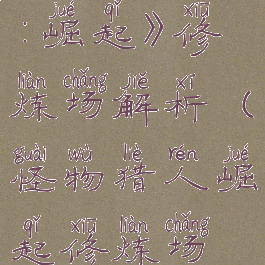 jué qǐ xiū
：崛起》修
liàn chǎng jiě xī
炼场解析（
guài wù liè rén jué
怪物猎人崛
qǐ xiū liàn chǎng
起修炼场